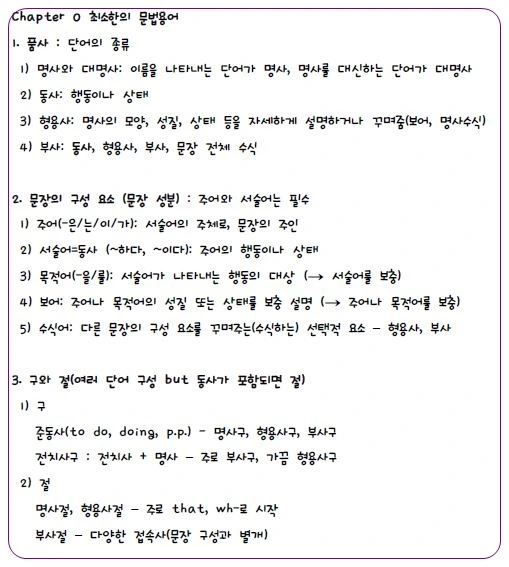 Chapter 0 최소한의 문법용어
1. 품사 : 단어의 종류
1) 명사와 대명사: 이름을 나타내는 단어가 명사, 명사를 대신하는 단어가 대명사
2) 동사: 행동이나 상태
3) 형용사: 명사의 모양, 성질, 상태 등을 자세하게 설명하거나 꾸며줌(보어, 명사수식)
4) 부사: 동사, 형용사, 부사, 문장 전체 수식
2. 문장의 구성 요소 (문장 성분) : 주어와 서술어는 필수
1) 주어(-은/는/이/가): 서술어의 주체로, 문장의 주인
2) 서술어=동사 (~하다, ~이다): 주어의 행동이나 상태
3) 목적어(-을/를): 서술어가 나타내는 행동의 대상 (→ 서술어를 보충)
4) 보어: 주어나 목적어의 성질 또는 상태를 보충 설명 (→ 주어나 목적어를 보충)
5) 수식어: 다른 문장의 구성 요소를 꾸며주는(수식하는) 선택적 요소 – 형용사, 부사
3. 구와 절(여러 단어 구성 but 동사가 포함되면 절)
1) 구
준동사(to do, doing, p.p.) - 명사구, 형용사구, 부사구
전치사구 : 전치사 + 명사 – 주로 부사구, 가끔 형용사구
2) 절
명사절, 형용사절 – 주로 that, wh-로 시작
부사절 – 다양한 접속사(문장 구성과 별개)